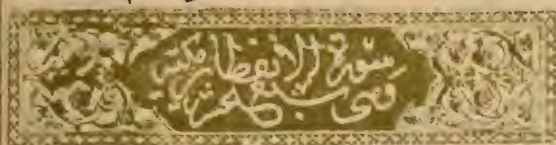 سورة الانفطار مكية
وهى تسع